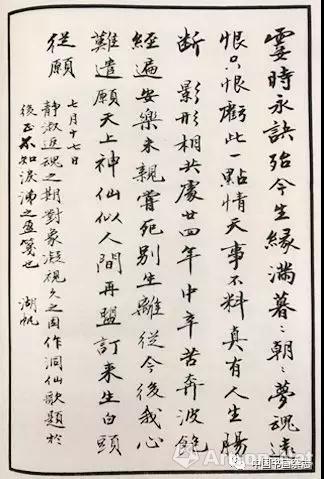 霎时永诀殆今生缘满暮〻朝〻夢魂遠
恨只恨虧此一點情天事不料真有人生腸
断 影形相共處廿四年中辛苦奔波飽
經遍安樂未親嘗死别生離從今後我心
難遣願天上神仙似人間再盟訂来生白頭
從願
七月十七日
静淑返魂之期對象凝視久之因作洞仙歌題於
後正不知淚沸之盈箋也 湖帆
中国书画鉴藏
Artron.Net